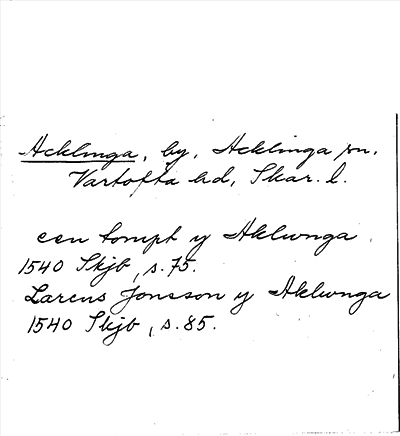 Acklinga, by, Acklinga sn.
Vartofta hd, Skar. l.
een tompt y Aklwnga
1540 Skjb, s. 75.
Larens Jonsson y Aklwnga
1540 Skjb, s. 85.